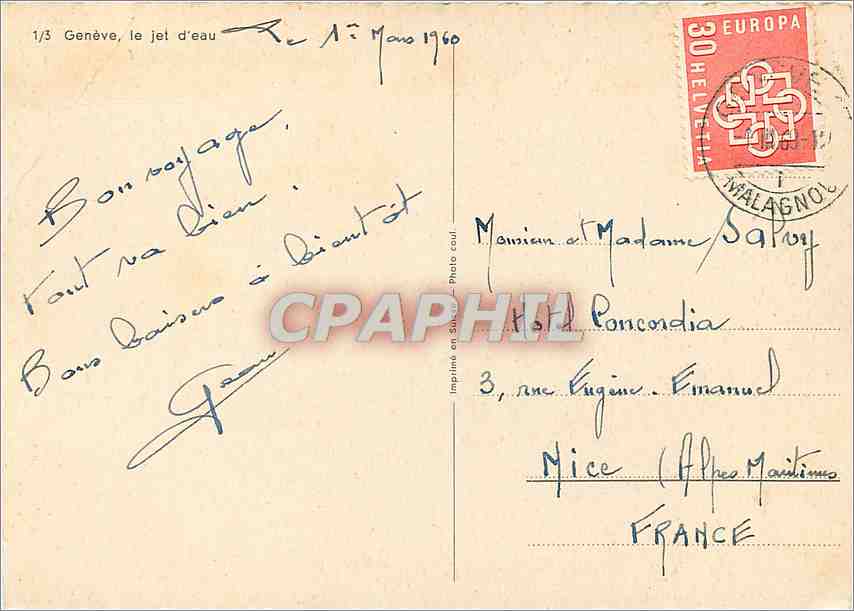 1/3 Genève, le jet d'eau
Le 1er Mars 1960
EUROPA
30 HELVETIA
MALAGNOU
Bon voyage.
Tout va bien.
Bons baisers à bientôt
Jean
Imprimé en Suisse - Photo coul.
CPAPHIL
Monsieur et Madame Salvy
Hotel Concordia
3, rue Eugène. Emanuel
Nice (Alpes Maritimes
FRANCE